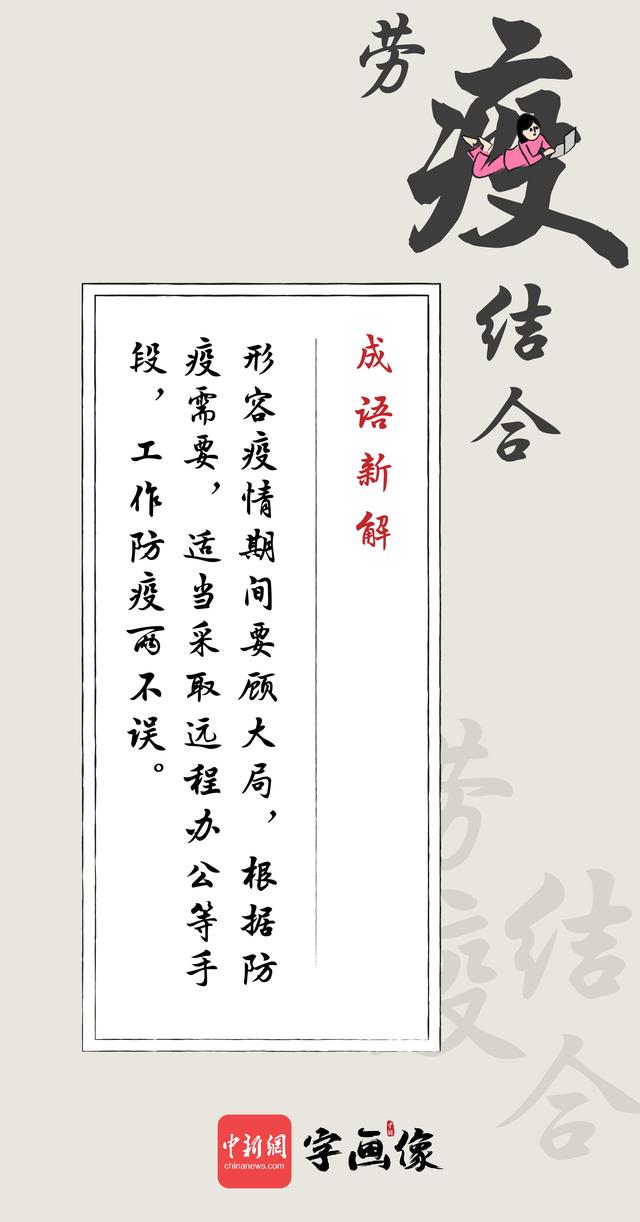 劳疫结合
成语新解
形容疫情期间要顾大局，根据防
疫需要，适当采取远程办公等手
段，工作防疫两不误。
劳疫
结合
中新網
chinanews.com
字画像